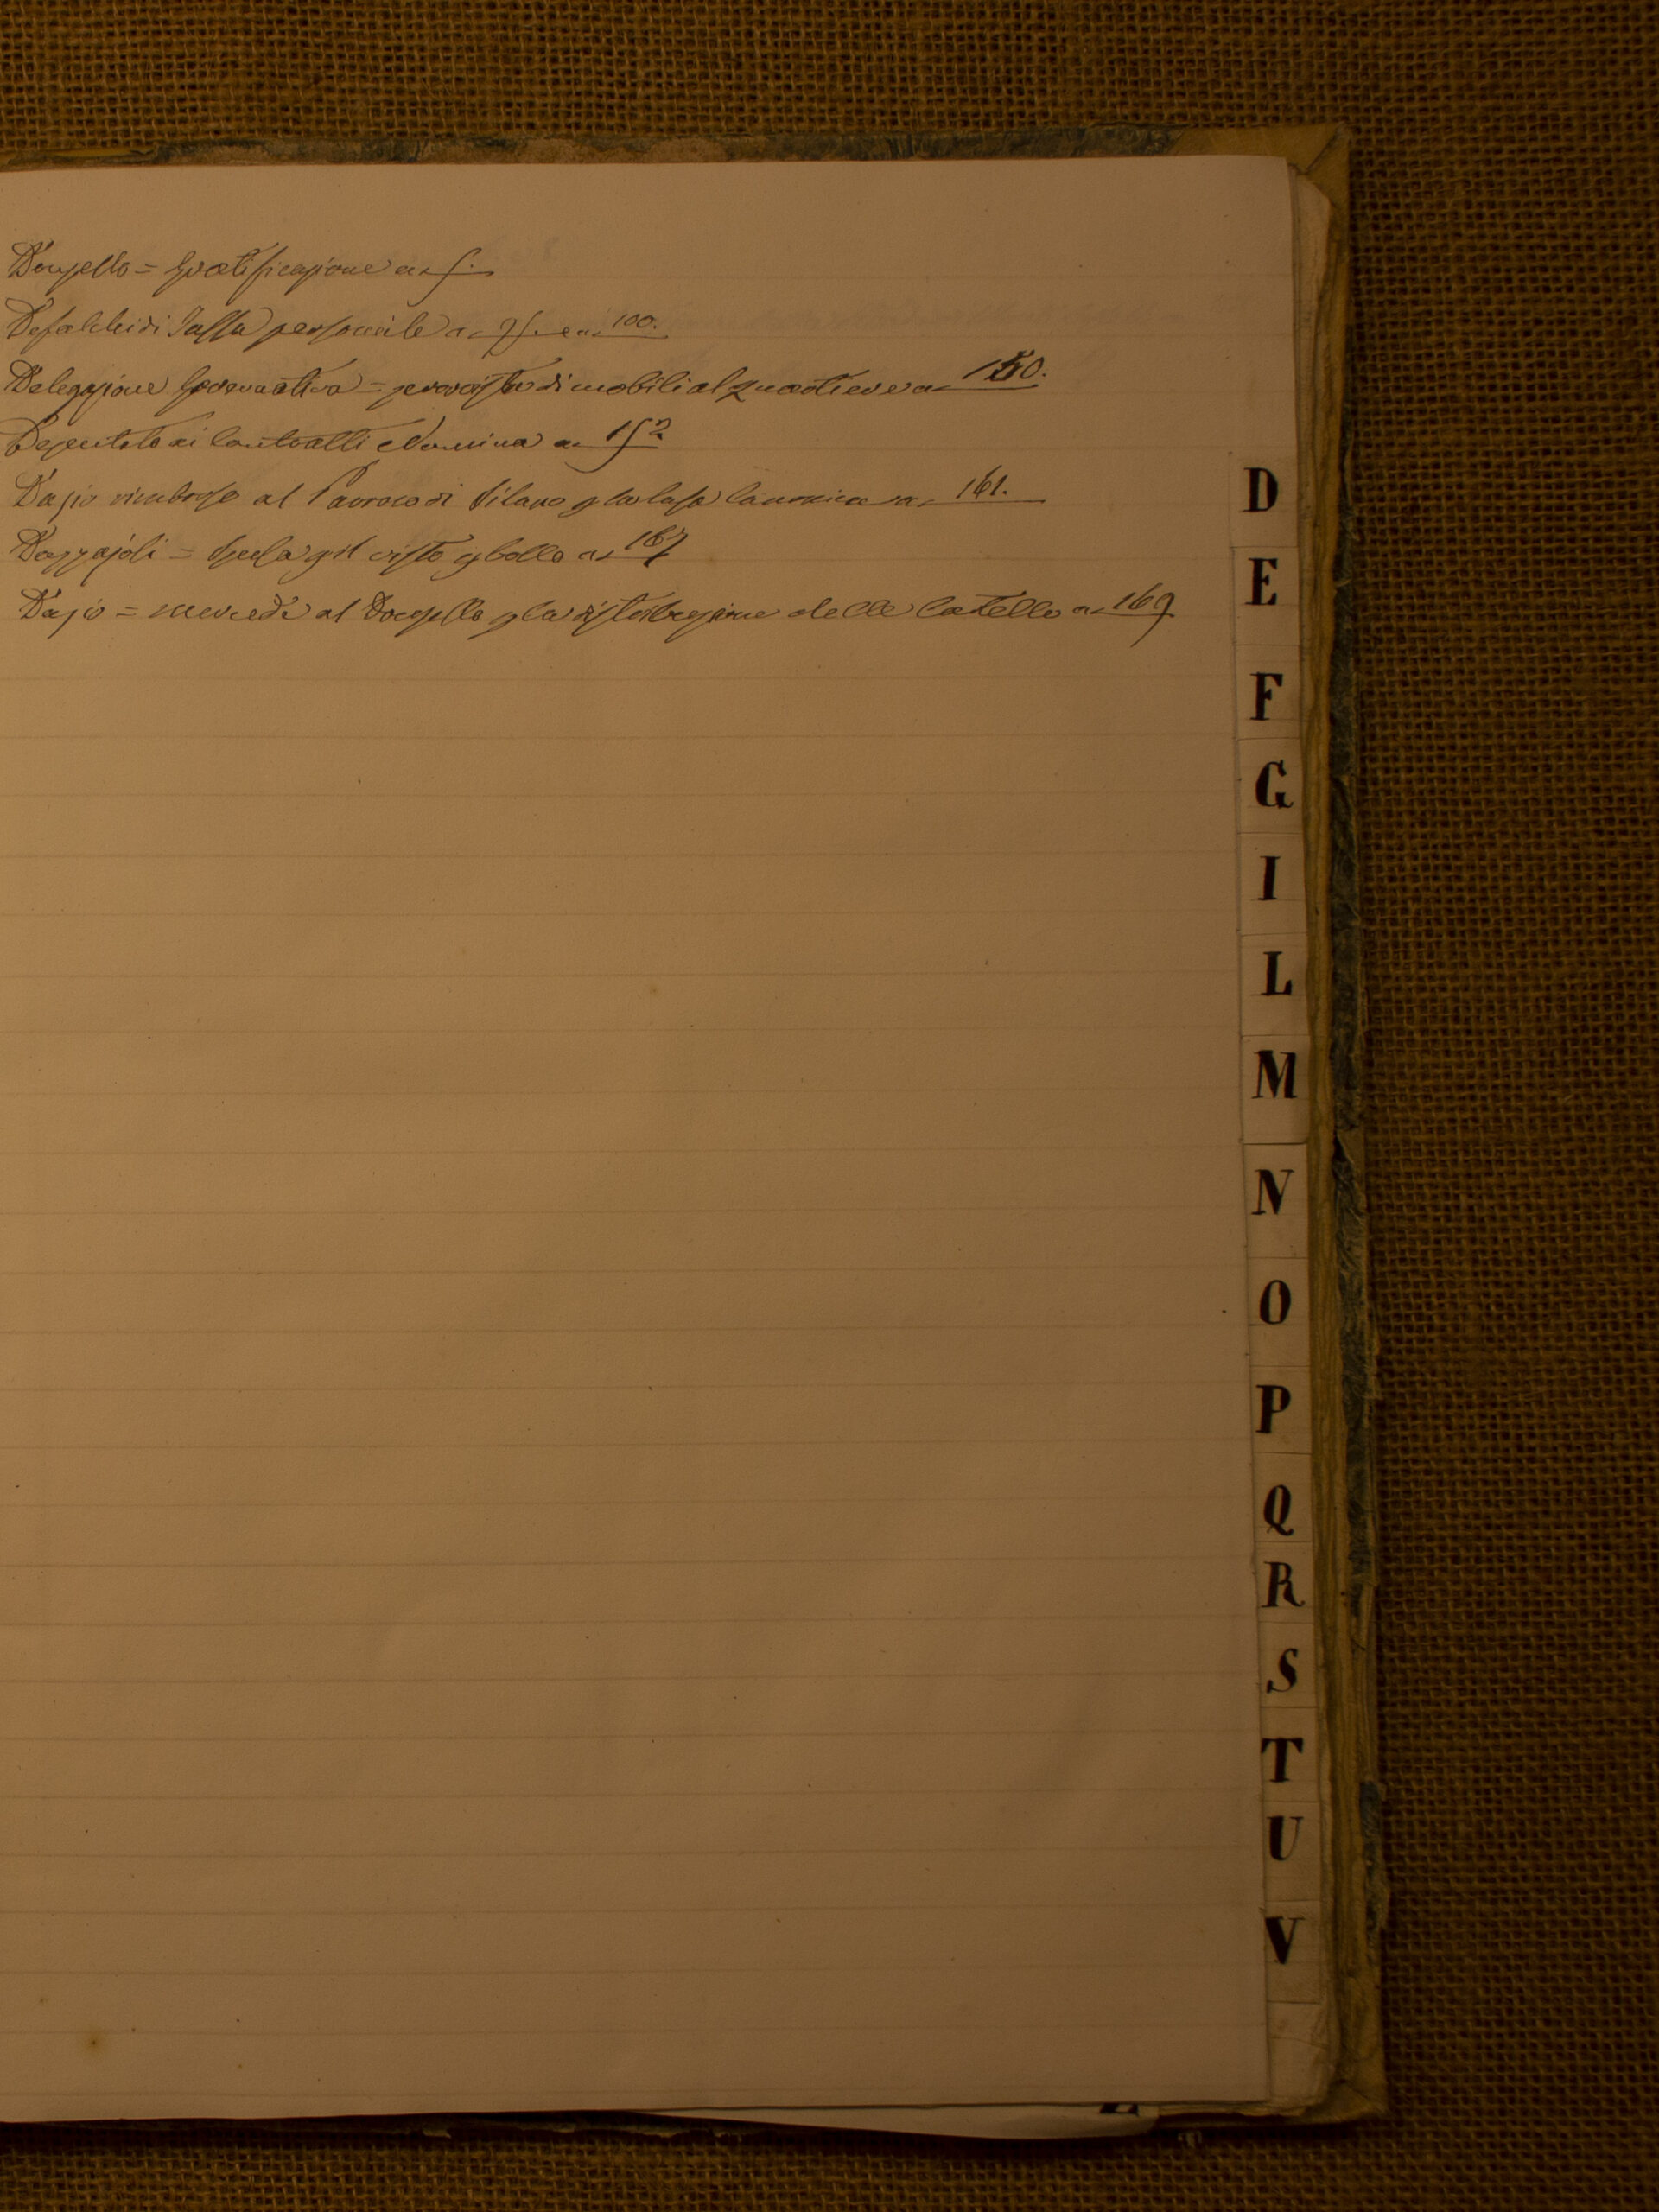 Donzello = Gratificazione a c 5.
Defalchi di Tassa personale a c 95. e a c 100.
Delegazione Governativa = provvista di mobili al quartiere a c 150.
Deputato ai Contratti Nomina a c 152
Dazio rimborso al Parroco di Silano p la casa Canonica a c 161.
Dazzajoli = p il visto p bollo a c 167
Dazio = mercede al Donzello p la distribuzione delle Cartelle a c 169
D
E
F
G
I
L
M
N
O
P
Q
R
S
T
U
V